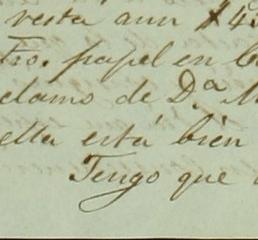 resta aun $4
tro. papel en b
clamo de D.ª M
ella está bien
Tengo que